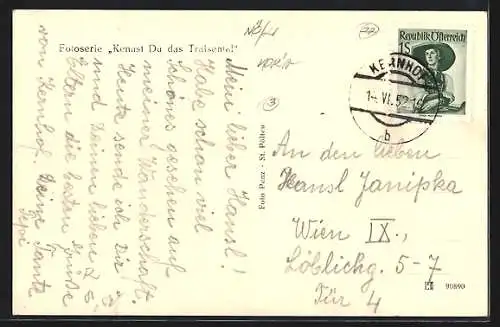 Fotoserie „Kennst Du das Traisental"
Mein lieber Hansl!
Habe schon viel
Schönes gesehen auf
meiner Wanderschaft.
Heute sende ich Dir
und Deinen lieben
Eltern die besten Grüße
von Kernhof. Deine Tante
Pepi
Foto Penz - St. Pölten
Republik Österreich
1S
KERNHOF
1.VI.52
b
An den lieben
Hansl Janipka
Wien IX.,
Löblichg. 5-7
Tür 4
90890
NÖ/
22
3